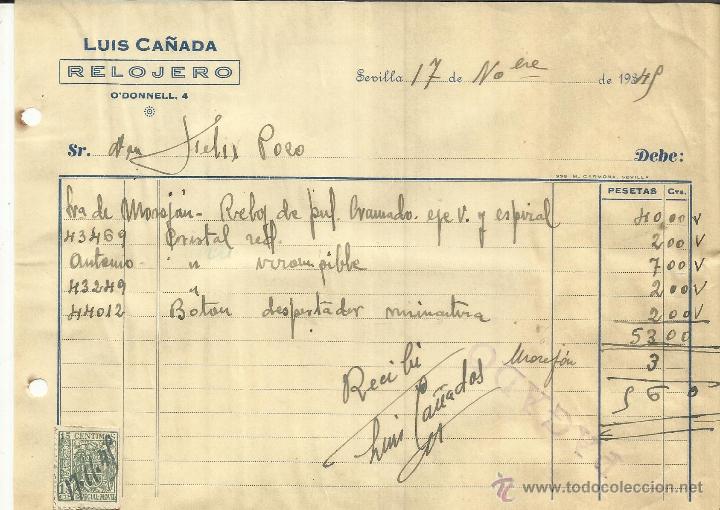 LUIS CAÑADA
RELOJERO
O'DONNELL, 4
Sevilla 17 de Nobre de 1945
Sr. Don Felix Pozo Debe:
M. CARMONA, SEVILLA
PESETAS Cts.
Sra de Morejón - Reloj de pul. Cromado eje v. y espiral 40,00 V
43469 Cristal red. 2 00 V
Antonio - " irrompible 7 00 V
43249 " 2 00 V
44012 Boton despertador miniatura 2 00 V
53 00
Recibí Morejón 3
Luis Cañadas 56 0
PAGADO
15 CENTIMOS
ESPECIAL MOVIL
www.todocoleccion.net